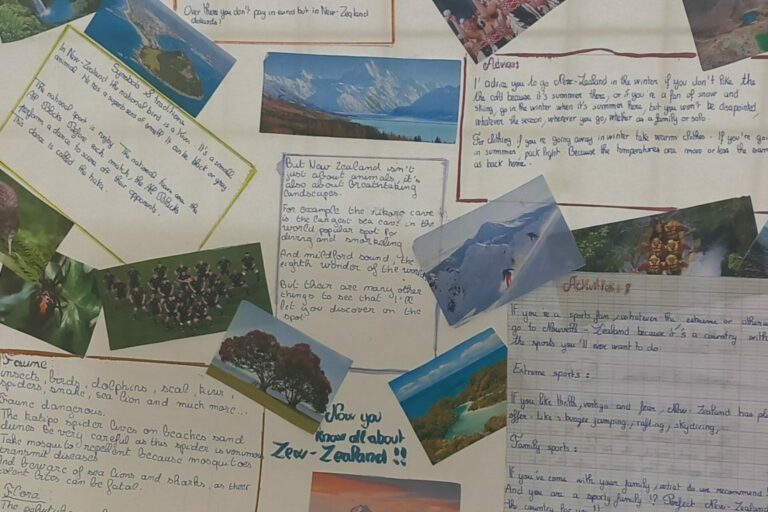 Over there you don't pay in euros but in New-Zealand
dollards!
Symbols & traditions
In New-Zealand the national bird is a Kiwi. It's a small
animal. He has a super sens of smell. It can be black or grey.
The national sport is rugby. The national team are the
All Blacks. Before each match, the All Blacks
perform a dance to scare off their opponents.
This dance is called the haka.
But New Zealand isn't
just about animals, it's
also about breathtaking
landscapes.
For example the rikoro cave
is the largest sea cave in the
world popular spot for
diving and snorkaling
And mildford sound, the
eighth wonder of the world
But their are many other
things to see that I'll
let you discover on the
spot.
Advices
I' advice you to go New-Zealand in the winter if you don't like the
the cold because it's summer there, or if you're a fan of snow and
skiing, go in the winter when it's summer here, but you won't be disapointed
whatever the season, wherever you go, whether as a family or solo.
For clothing if you're going away in winter take warm clothes. If you're going
in summer, pack light. Because the temperatures are more or less the same
as back home.
Activities:
If you're a sports fan, whatever the extreme or otherwise
go to New-Zealand because it's a country with
the sports you'll ever want to do.
Extreme sports:
If you like thrills, vertigo and fear, New-Zealand has
offer. Like: bungee jumping, rafting, skydiving,
Family sports:
If you've come with your family, what do we recommend
And you are a sporty family!? Perfect New-Zealand
the country for you!!
Faune
insects, birds, dolphins, seal, kiwi,
spiders, snake, sea lion and much more...
Faune dangerous.
The katipo spider lives on beaches sand
dunes be very careful as this spider is venimous
Take mosquito repellent because mosquitoes
transmit diseases
And beware of sea lions and sharks, as their
bites can be fatal.
Flora:
The
Now you
know all about
Zew-Zealand!!